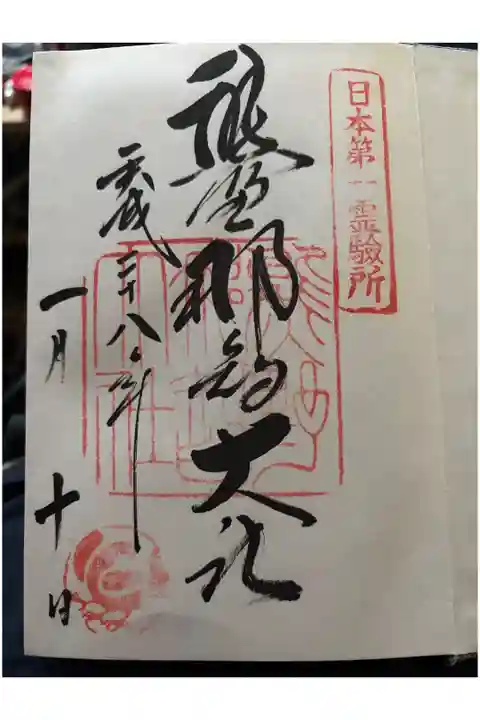 日本第一霊驗所
熊野那智大社
平成二十八年
一月十日